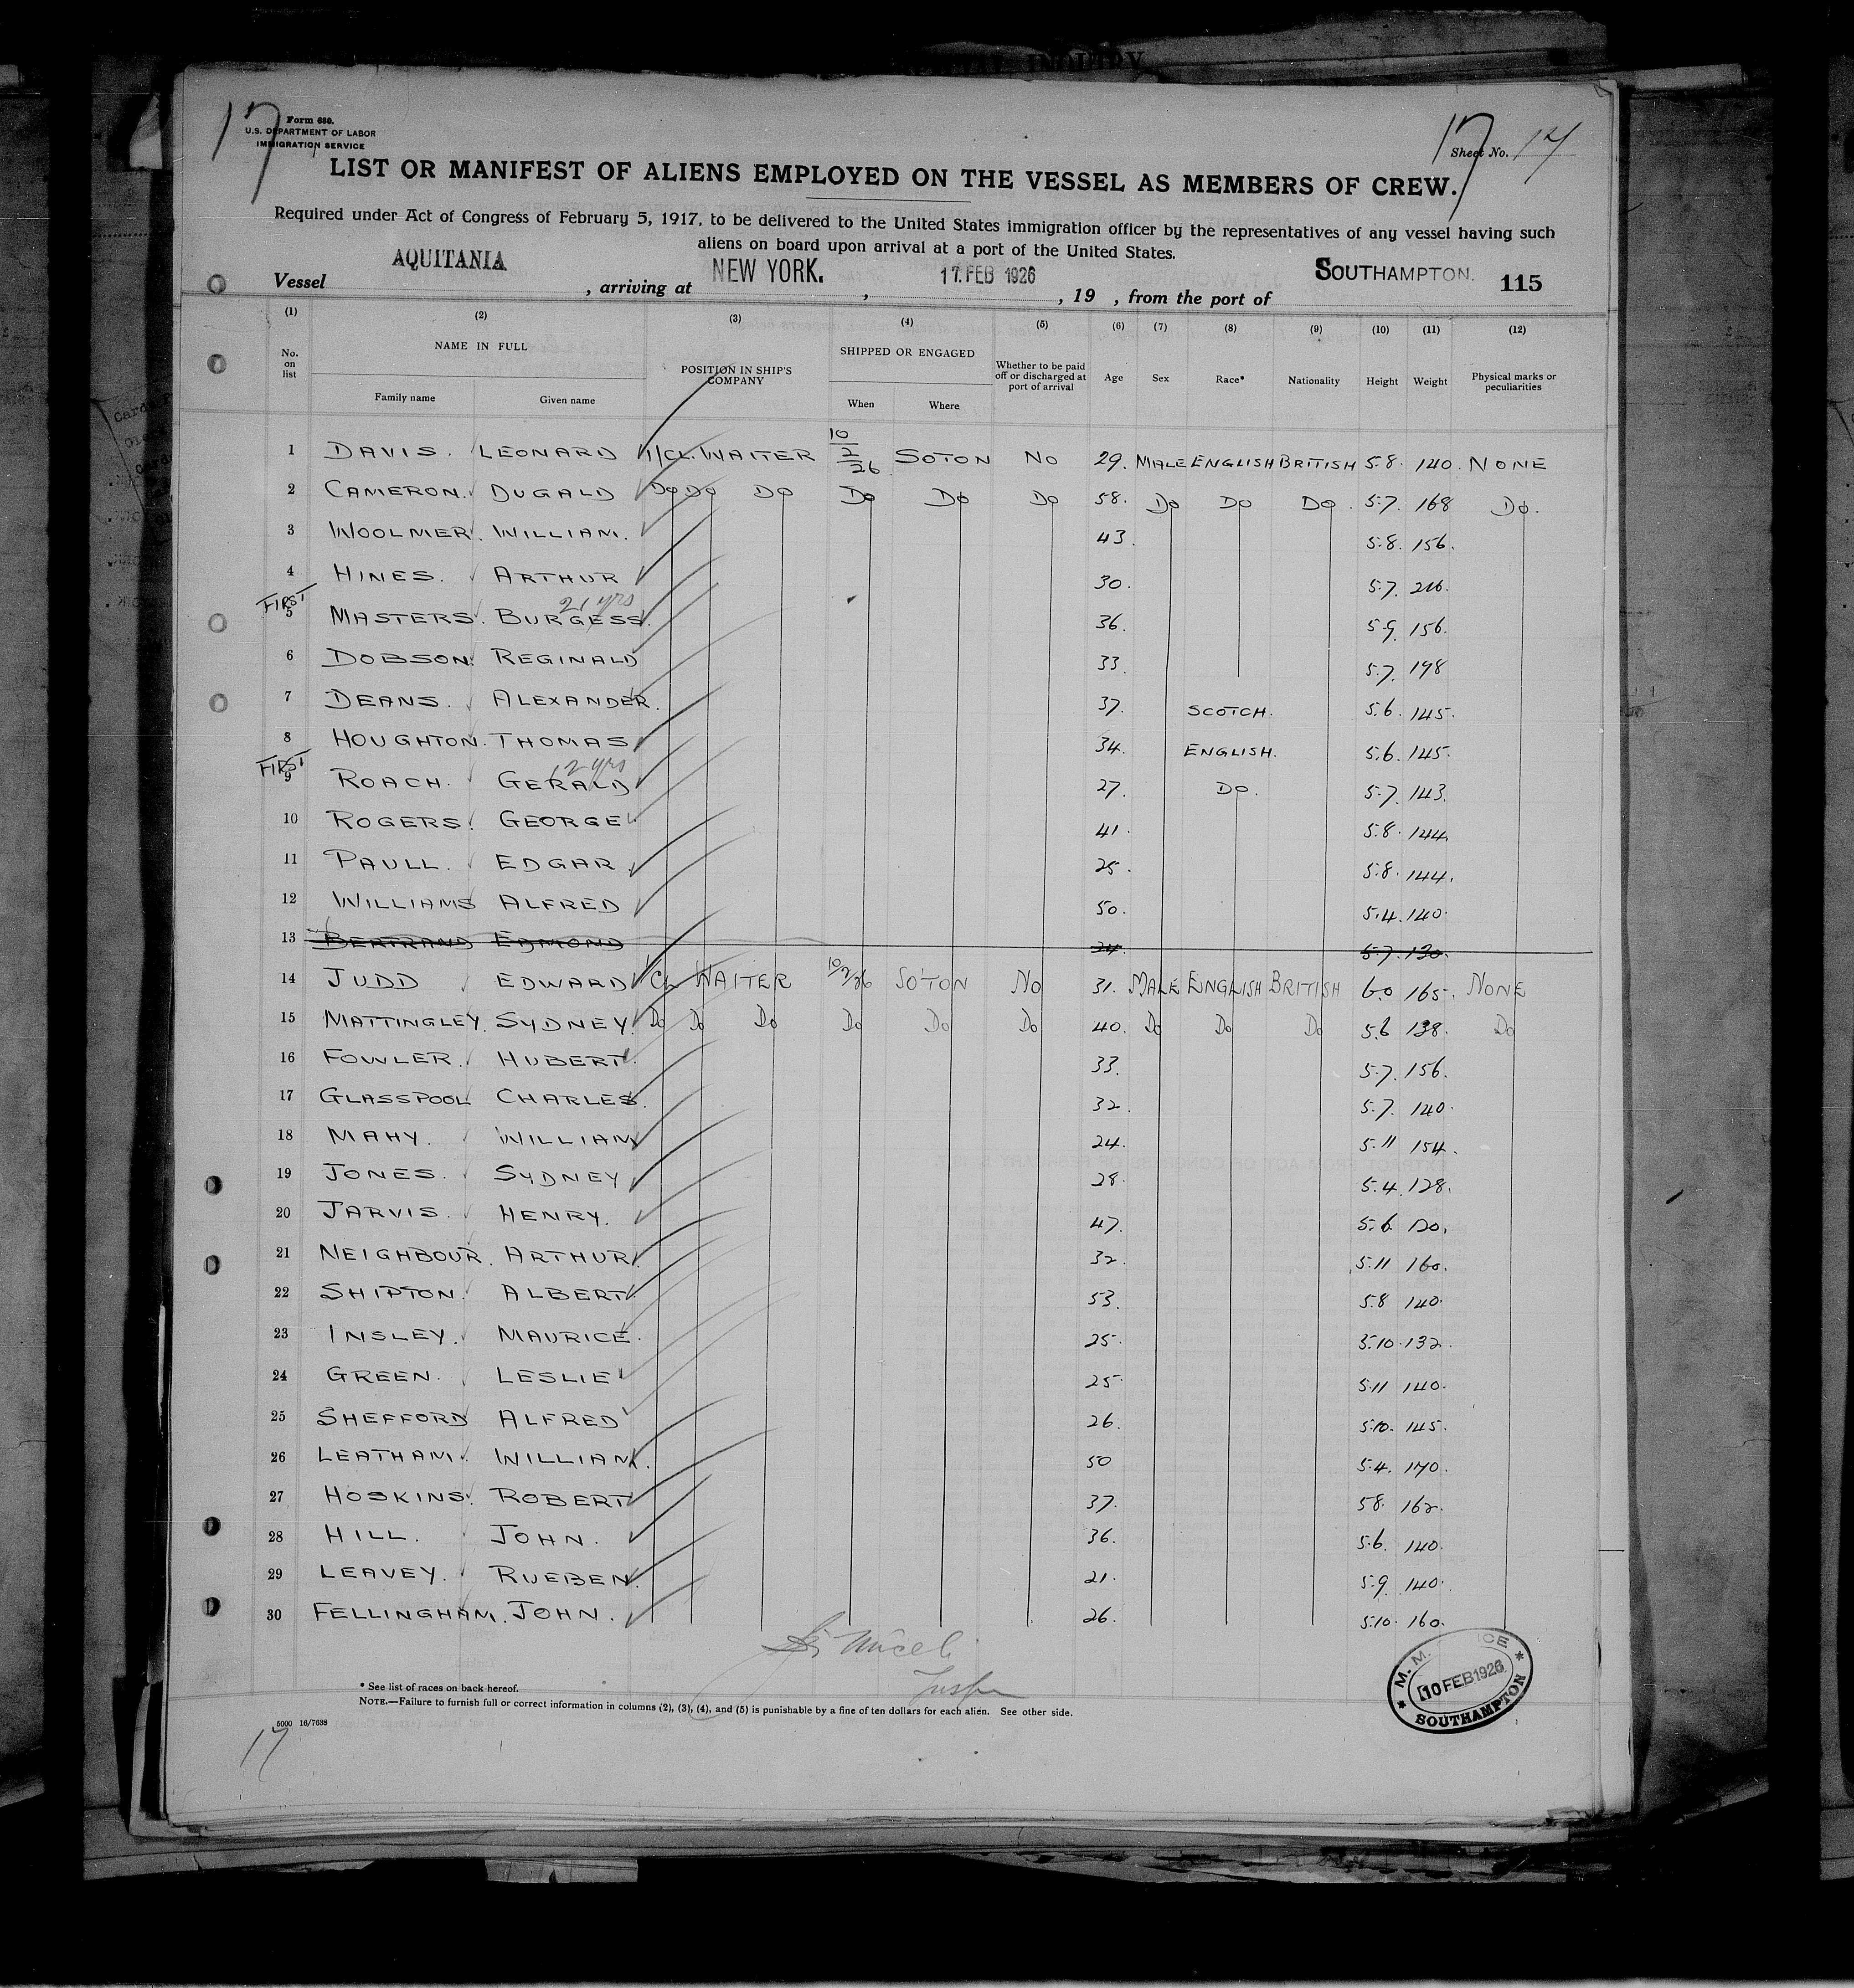 17
Form 680.
U.S. DEPARTMENT OF LABOR
IMMIGRATION SERVICE
17
Sheet No. 17
LIST OR MANIFEST OF ALIENS EMPLOYED ON THE VESSEL AS MEMBERS OF CREW.
Required under Act of Congress of February 5, 1917, to be delivered to the United States immigration officer by the representatives of any vessel having such
aliens on board upon arrival at a port of the United States.
Vessel AQUITANIA , arriving at NEW YORK. , 17. FEB 1926 , 19 , from the port of SOUTHAMPTON. 115
(1) (2) (3) (4) (5) (6) (7) (8) (9) (10) (11) (12)
No. on list NAME IN FULL POSITION IN SHIP'S COMPANY SHIPPED OR ENGAGED Whether to be paid off or discharged at port of arrival Age Sex Race* Nationality Height Weight Physical marks or peculiarities
Family name Given name When Where
1 DAVIS. LEONARD 1/CL. WAITER 10/2/26 SOTON NO 29. MALE ENGLISH BRITISH 5.8. 140. NONE
2 CAMERON. DUGALD DO DO DO DO DO DO 58. DO DO DO. 5.7. 168 DO.
3 WOOLMER. WILLIAM. 43. 5.8. 156.
4 HINES. ARTHUR 30. 5.7.
FIRST 21 yrs
5 MASTERS. BURGESS. 36. 5.9. 156.
6 DOBSON. REGINALD 33. 5.7. 198
7 DEANS. ALEXANDER. 37. SCOTCH. 5.6. 145.
8 HOUGHTON. THOMAS 34. ENGLISH. 5.6. 145.
FIRST 12 yrs
9 ROACH. GERALD 27. DO. 5.7. 143.
10 ROGERS. GEORGE 41. 5.8. 144.
11 PAULL. EDGAR 25. 5.8. 144.
12 WILLIAMS ALFRED 50. 5.4. 140.
13 BERTRAND EDMOND 24. 5.7. 130.
14 JUDD EDWARD 1 CL WAITER 10/2/26 SO'TON NO 31. MALE ENGLISH BRITISH 6.0 165. NONE
15 MATTINGLEY. SYDNEY. DO DO DO DO DO DO 40. DO DO DO 5.6 138. DO
16 FOWLER. HUBERT. 33. 5.7. 156.
17 GLASSPOOL CHARLES. 32. 5.7. 140.
18 MAHY. WILLIAM 24. 5.11 154.
19 JONES. SYDNEY 28. 5.4. 128.
20 JARVIS. HENRY. 47. 5.6.
21 NEIGHBOUR. ARTHUR. 32. 5.11 160.
22 SHIPTON. ALBERT. 53. 5.8 140.
23 INSLEY. MAURICE. 25. 5.10. 132.
24 GREEN. LESLIE 25. 5.11 140.
25 SHEFFORD ALFRED 26. 5.10. 145.
26 LEATHAM. WILLIAM. 50 5.4. 170.
27 HOSKINS. ROBERT 37. 5.8. 162.
28 HILL. JOHN. 36. 5.6. 140.
29 LEAVEY. RUEBEN. 21. 5.9. 140.
30 FELLINGHAM. JOHN. 26. 5.10. 160.
* See list of races on back hereof.
NOTE.—Failure to furnish full or correct information in columns (2), (3), (4), and (5) is punishable by a fine of ten dollars for each alien. See other side.
5000 16/7638
17
10 FEB 1926
SOUTHAMPTON